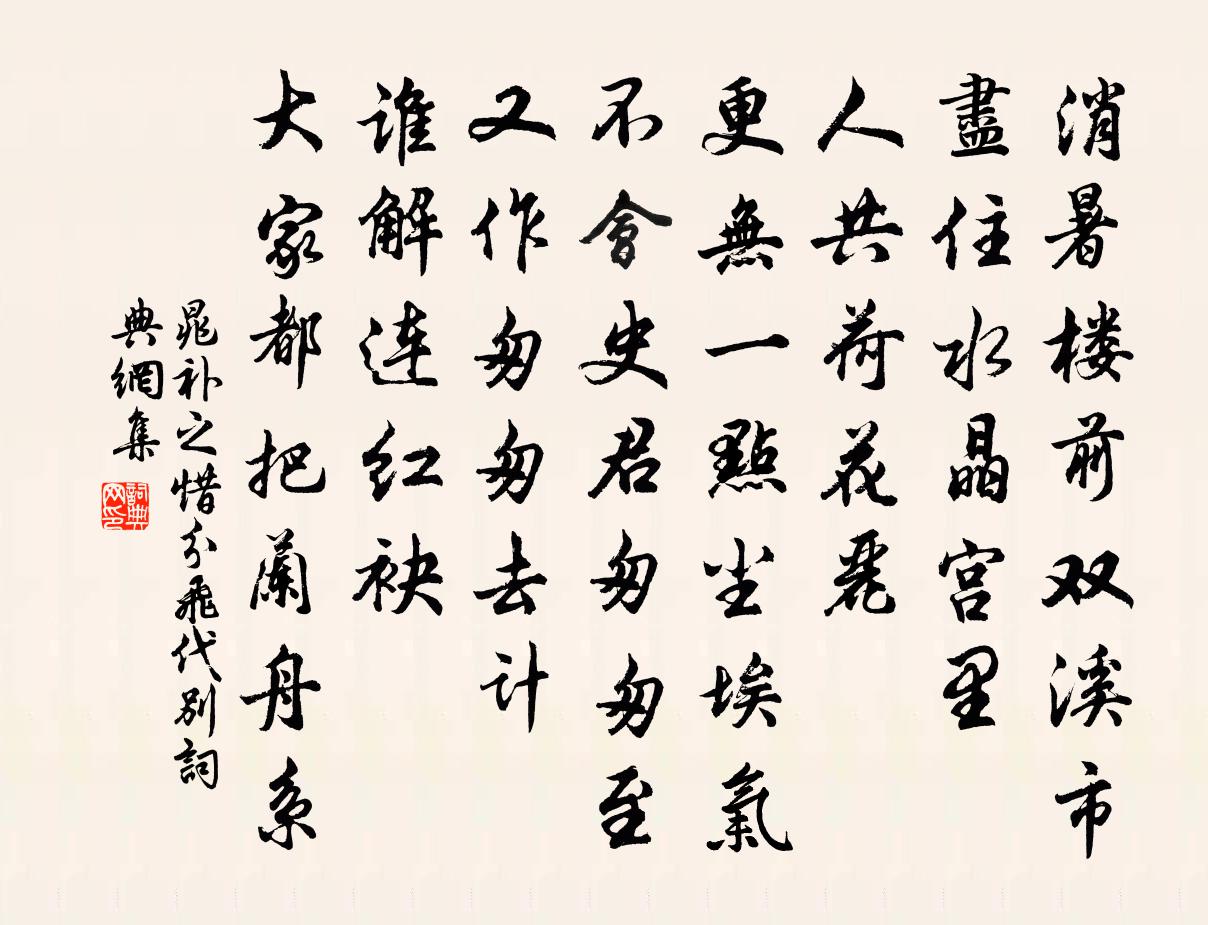 消暑楼前双溪市
盡住水晶宫里
人共荷花麗
更無一點尘埃氣
不會史君匆匆至
又作匆匆去计
谁解连红袂
大家都把蘭舟系
晁补之惜分飛代别詞
典網集
詞典
网印